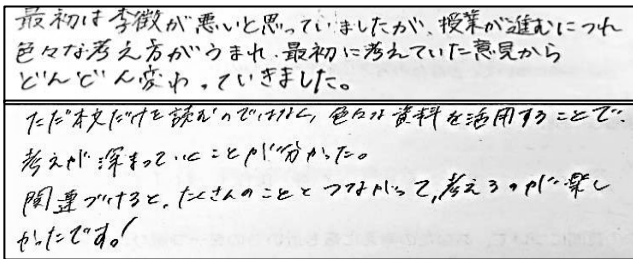 最初は李徴が悪いと思っていましたが、授業が進むにつれ
色々な考え方がうまれ、最初に考えていた意見から
どんどん変わっていきました。
ただ本文だけを読むのではなく、色々な資料を活用することで、
考えが深まっていくことが分かった。
関連づけると、たくさんのこととつながって、考えるのが楽し
かったです!